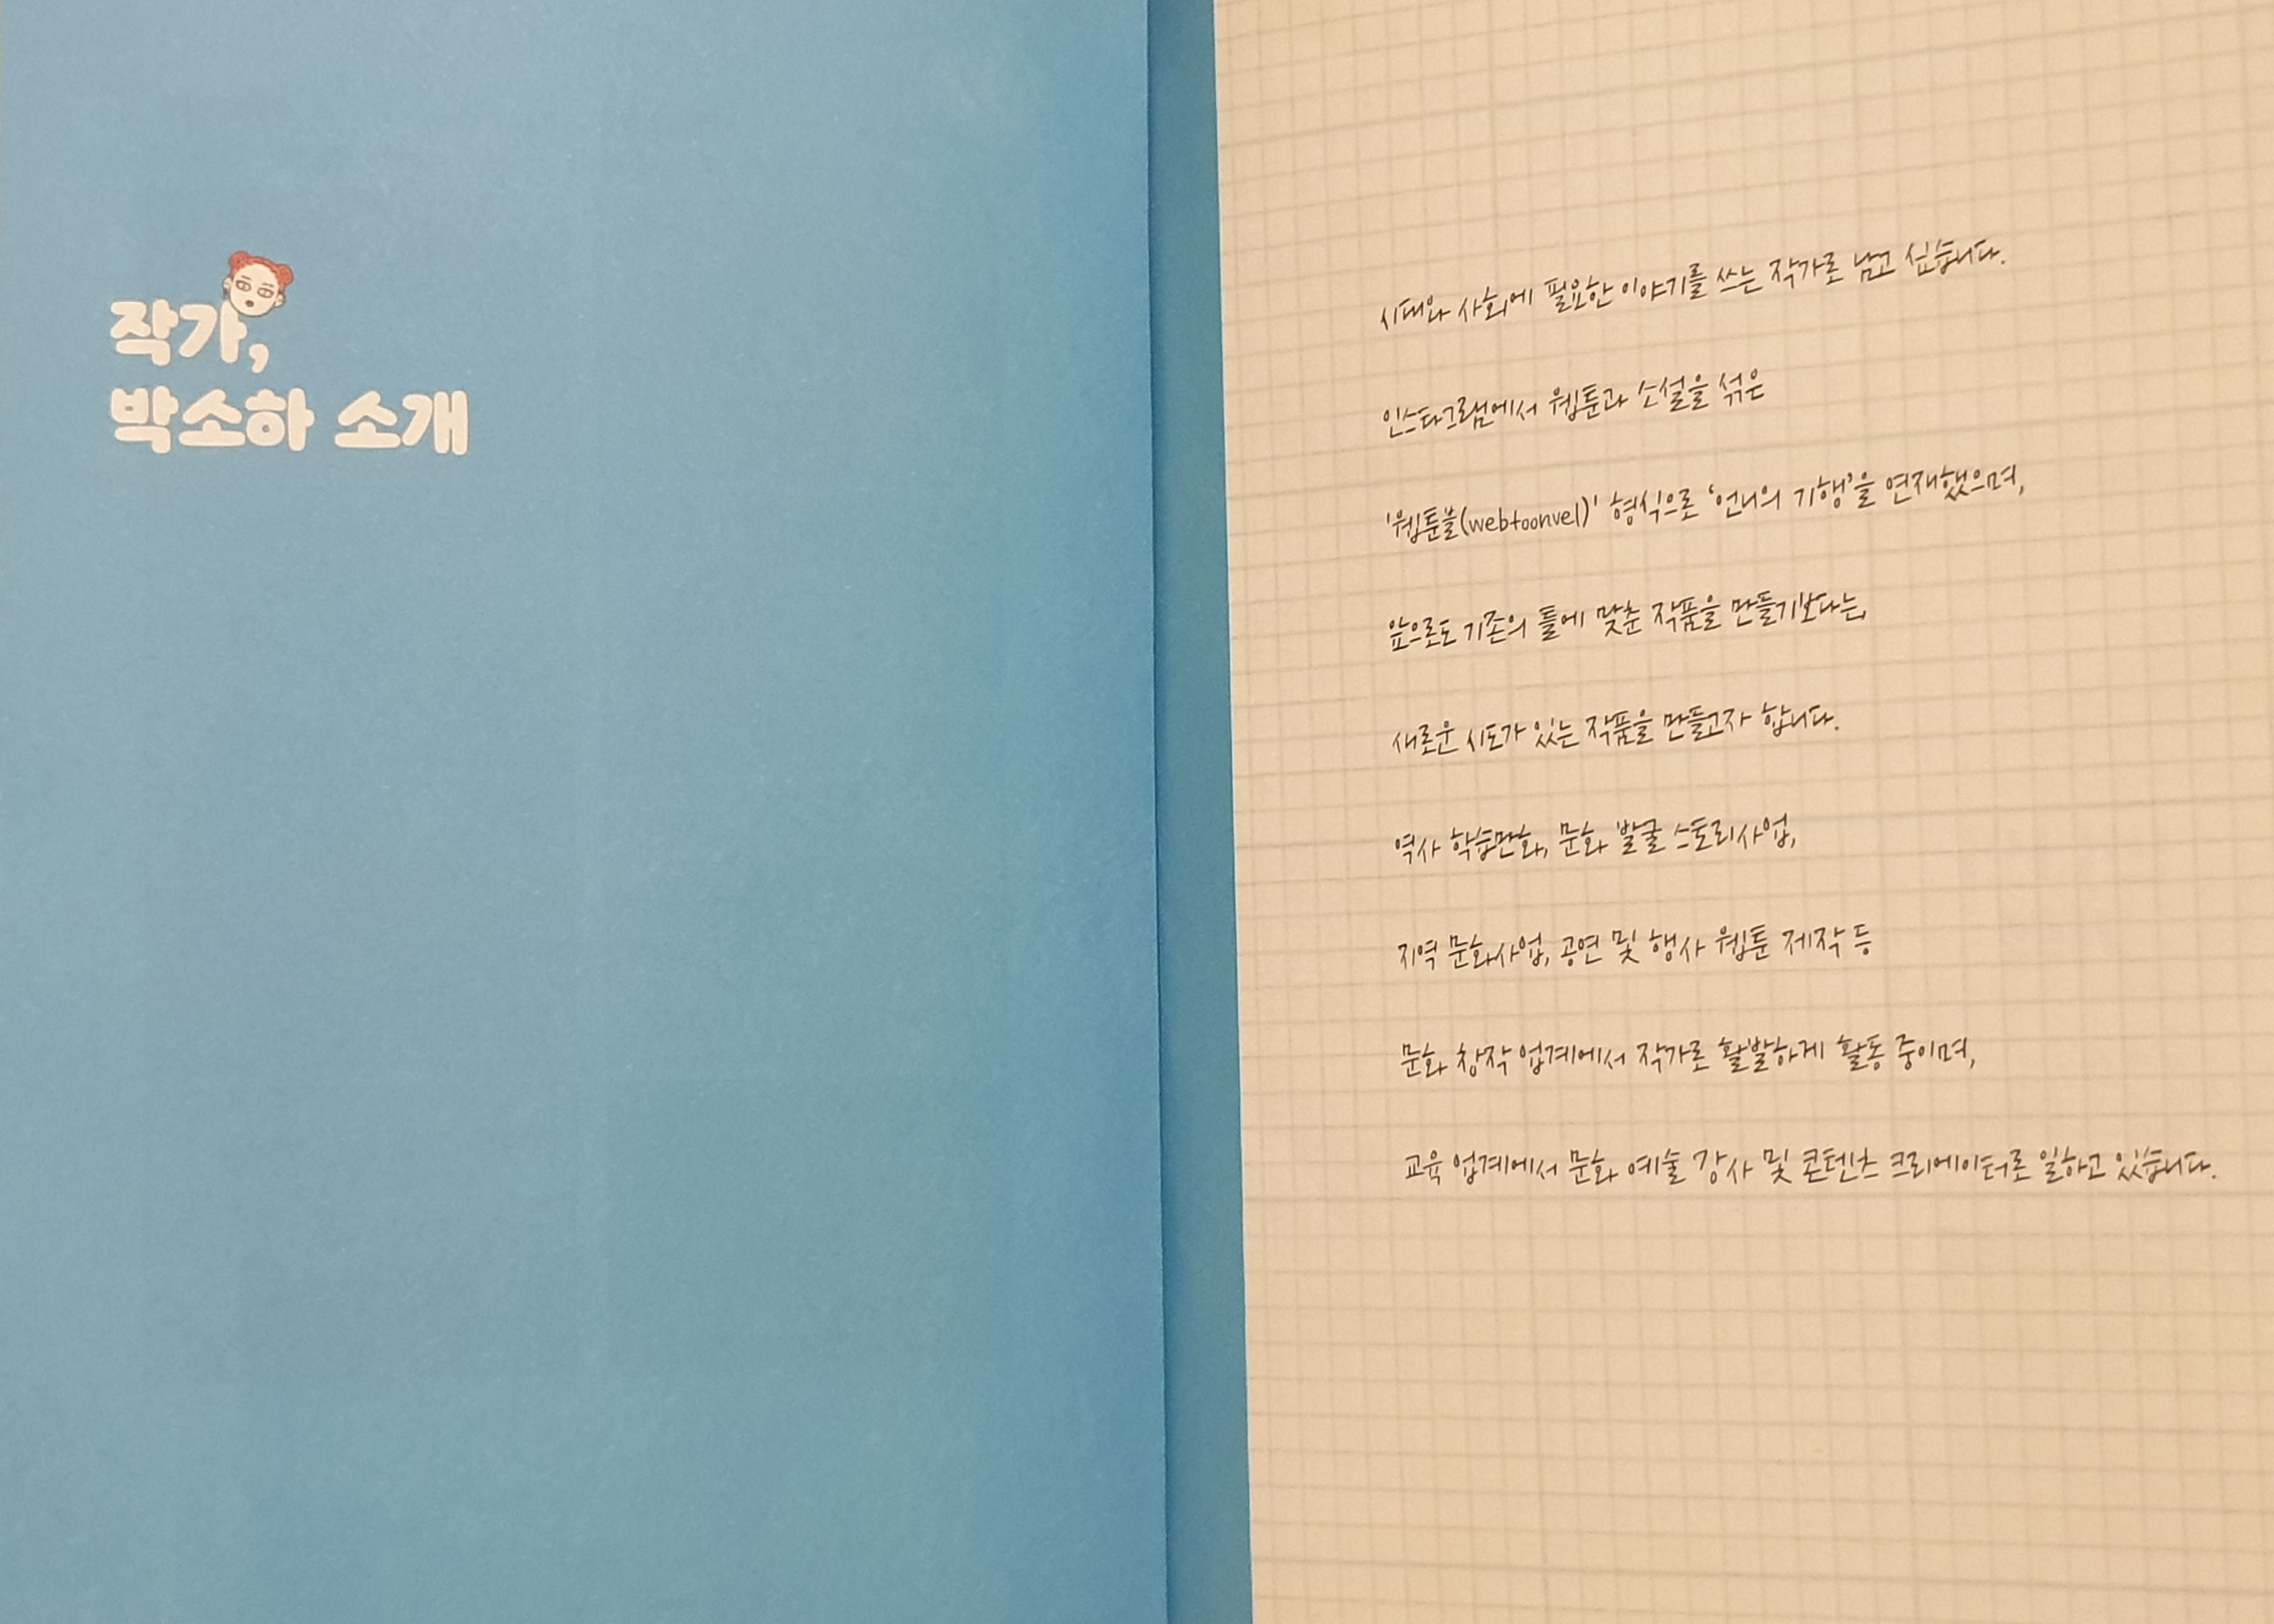 작가,
박소하 소개
시대와 사회에 필요한 이야기를 쓰는 작가로 남고 싶습니다.
인스타그램에서 웹툰과 소설을 섞은
'웹툰블(webtoonvel)' 형식으로 ‘언니의 기행’을 연재했으며,
앞으로도 기존의 틀에 맞춘 작품을 만들기보다는,
새로운 시도가 있는 작품을 만들고자 합니다.
역사 학습만화, 문화 발굴 스토리사업,
지역 문화사업, 공연 및 행사 웹툰 제작 등
문화 창작 업계에서 작가로 활발하게 활동 중이며,
교육 업계에서 문화 예술 강사 및 콘텐츠 크리에이터로 일하고 있습니다.